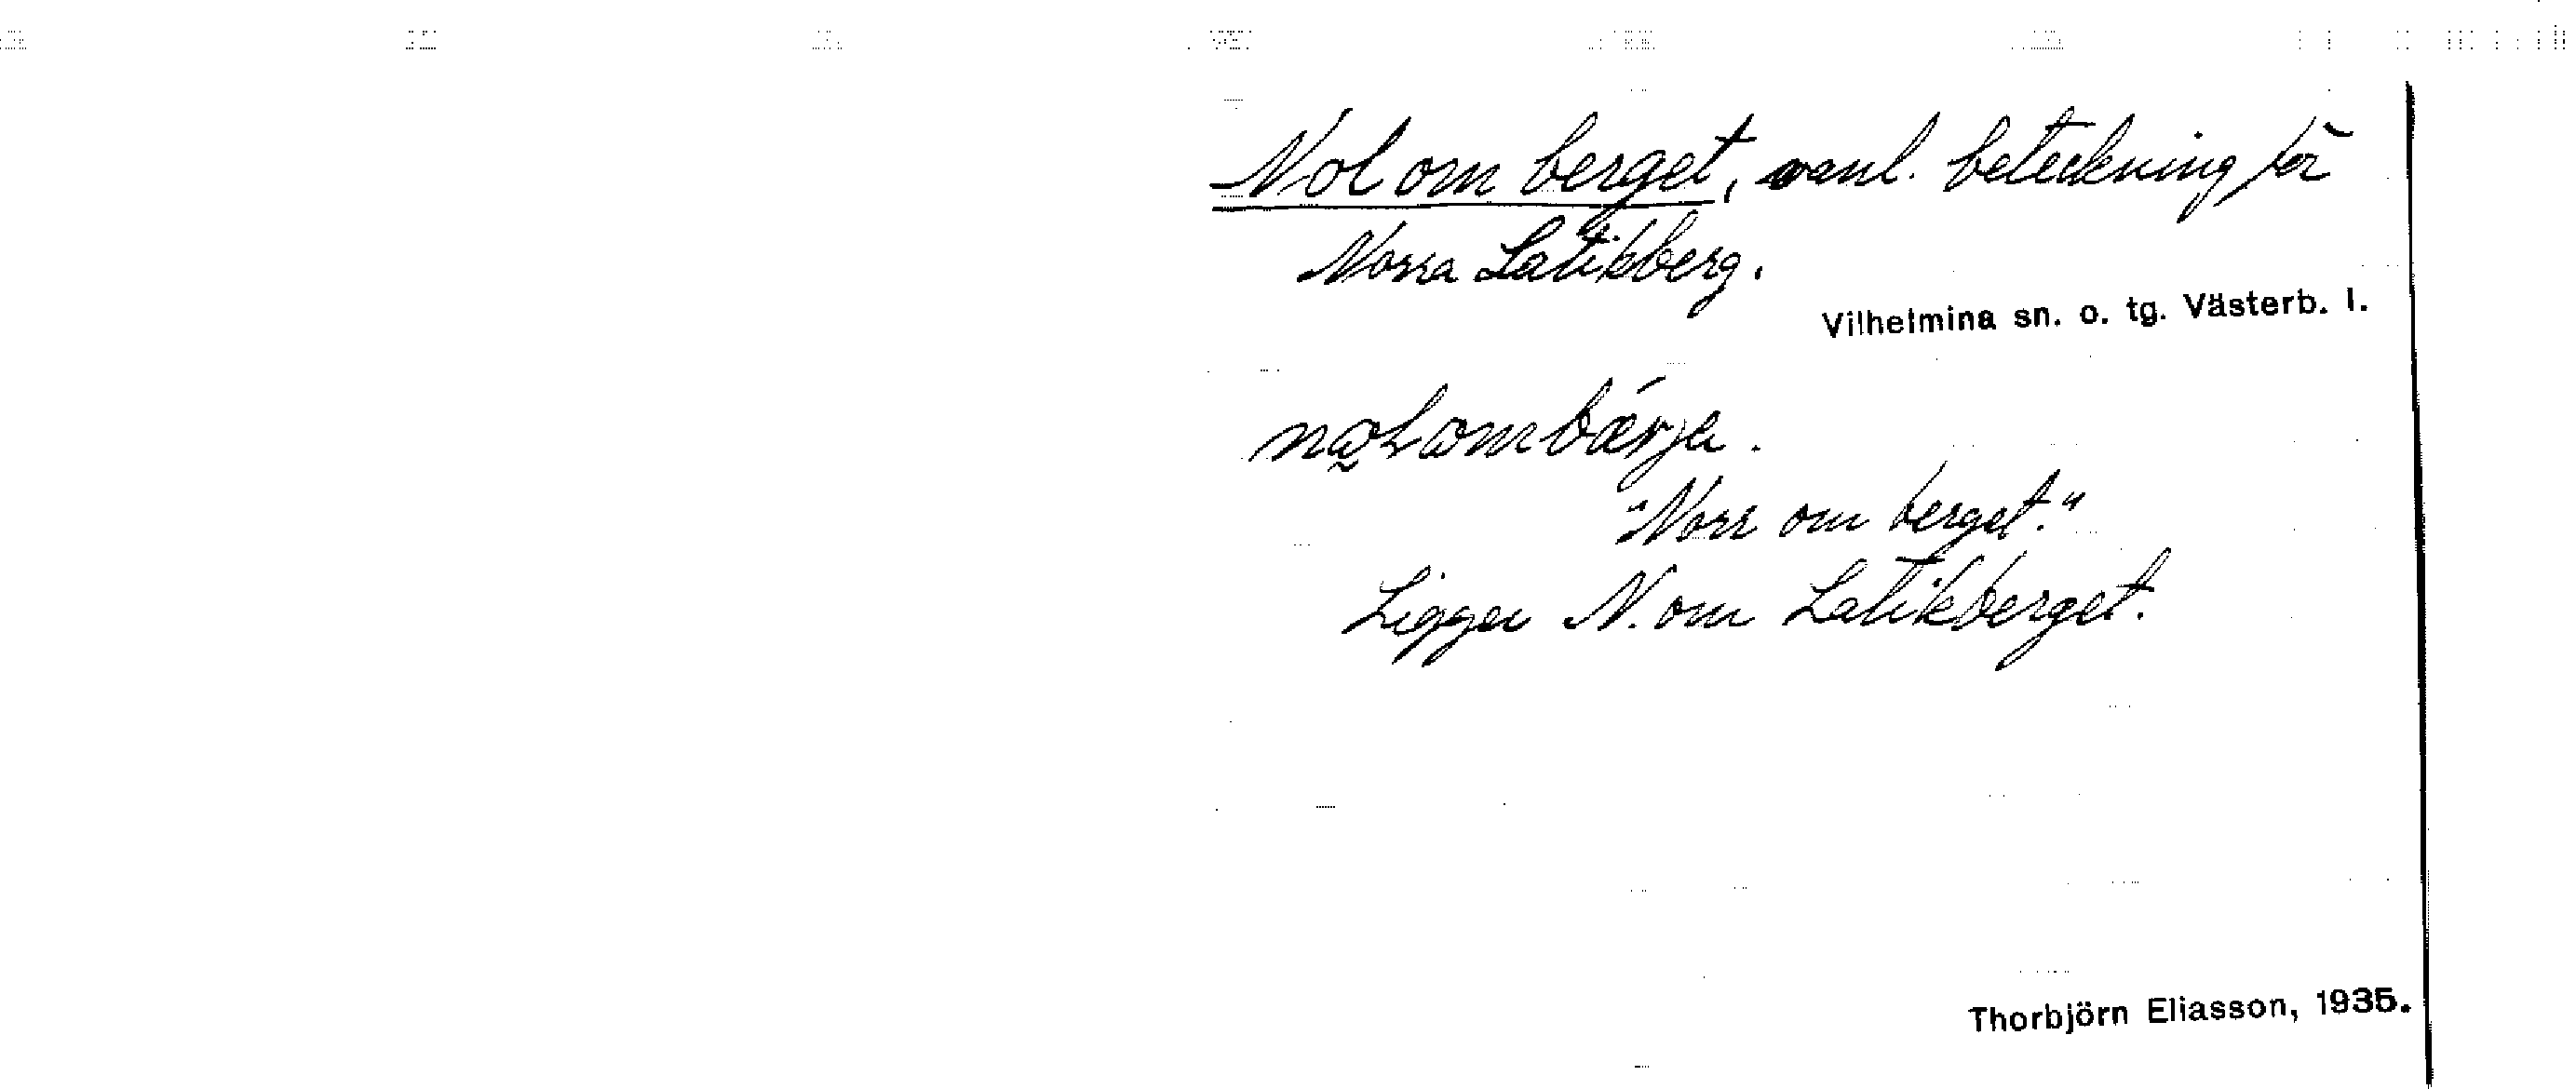 Nol om berget, vanl. beteckning för
Norra Latikberg.
Vilhelmina sn. o. tg. Västerb. l.
"Norr om berget."
Ligger N. om Latikberget.
Thorbjörn Eliasson, 1935.